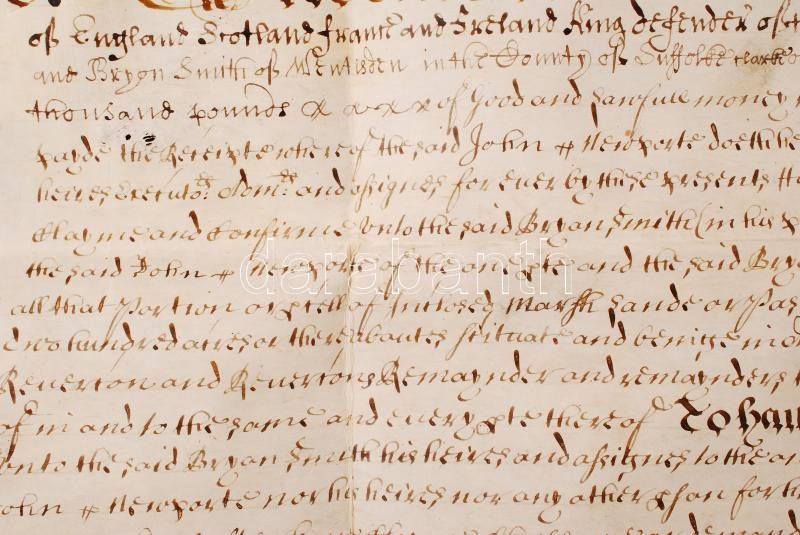 of England Scotland france and Ireland King defender of
and Bryon Smith of Wentisden in the County of Suffolke clarke
thousand pounds x x x x of Good and Lawfull money
payde the Receipte whereof the said John Newporte doeth he
heires Executors: Adm:rs and assignes for ever by these presents
Clayme and Confirme Unto the said Bryan Smith (in his
the said John Newporte of the one pte and the said Bry
all that Portion or pcell of Inclosed Marsh Lande or Pas
two hundred acres or thereaboutes scituate and beninge in
Reverton and Revertons Remaynder and remaynders
of in and to the same and every pte thereof To hau
Unto the said Bryan Smith his heires and assignes to the
John Newporte nor his heires nor any other pson for h
darabanth